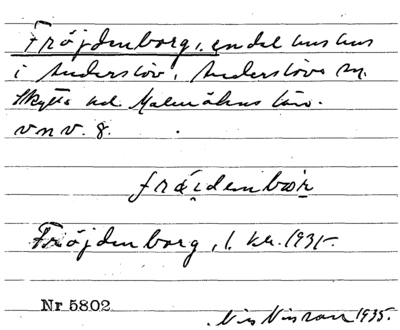 Fröjdenborg, en del hus hus
i Anderslöv, Anderslövs sn.
Skytts hd. Malmöhus län.
v n v. 8.
fräidenbœr
Fröjdenborg, l. kr. 1935
Nr 5802
Nils Nilsson 1935.